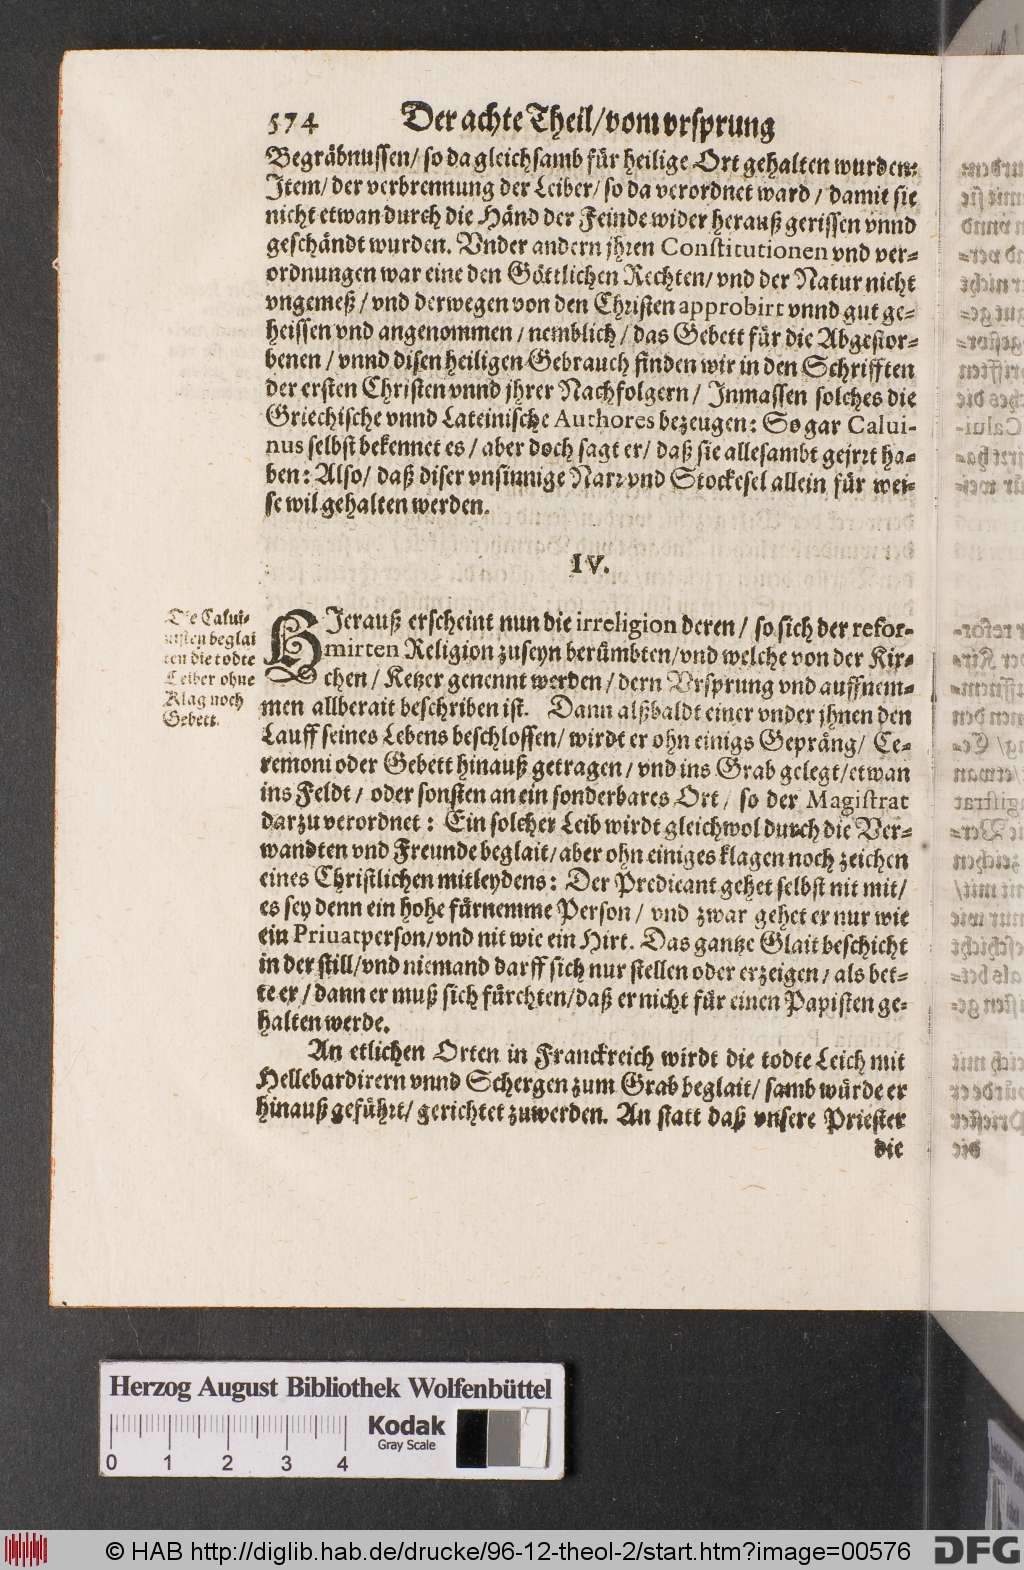 574 Der achte Theil/vom vrsprung
Begräbnussen/ so da gleichsamb für heilige Ort gehalten wurden:
Item/ der verbrennung der Leiber/ so da verordnet ward / damit sie
nicht etwan durch die Händ der Feinde wider herauß gerissen vnnd
geschändt wurden. Vnder andern jhren Constitutionen vnd ver-
ordnungen war eine den Göttlichen Rechten/ vnd der Natur nicht
vngemeß / vnd derwegen von den Christen approbirt vnnd gut ge-
heissen vnd angenommen / nemblich / das Gebett für die Abgestor-
benen / vnnd disen heiligen Gebrauch finden wir in den Schrifften
der ersten Christen vnnd jhrer Nachfolgern / Inmassen solches die
Griechische vnnd Lateinische Authores bezeugen: So gar Calui-
nus selbst bekennet es / aber doch sagt er/ daß sie allesambt gejrzt ha-
ben: Also/ daß diser vnsinnige Narz vnd Stockesel allein für wei-
se wil gehalten werden.
IV.
Die Calui-
nisten beglai
ten die todte
Leiber ohne
Klag noch
Gebett.
HIerauß erscheint nun die irreligion deren / so sich der refor-
mirten Religion zuseyn berümbten/vnd welche von der Kir-
chen / Ketzer genennt werden / dern Vrsprung vnd auffnem-
men allberait beschriben ist. Dann alßbaldt einer vnder jhnen den
Lauff seines Lebens beschlossen/ wirdt er ohn einigs Gepräng/ Ce-
remoni oder Gebett hinauß getragen / vnd ins Grab gelegt/etwan
ins Feldt / oder sonsten an ein sonderbares Ort / so der Magistrat
darzu verordnet : Ein solcher Leib wirdt gleichwol durch die Ver-
wandten vnd Freunde beglait/ aber ohn einiges klagen noch zeichen
eines Christlichen mitleydens: Der Predicant gehet selbst nit mit/
es sey denn ein hohe fürnemme Person / vnd zwar gehet er nur wie
ein Priuatperson/vnd nit wie ein Hirt. Das gantze Glait beschicht
in der still/vnd niemand darff sich nur stellen oder erzeigen / als bet-
te er / dann er muß sich fürchten/daß er nicht für einen Papisten ge-
halten werde.
An etlichen Orten in Franckreich wirdt die todte Leich mit
Hellebardirern vnnd Schergen zum Grab beglait/ samb würde er
hinauß geführt/ gerichtet zuwerden. An statt daß vnsere Priester
die
Herzog August Bibliothek Wolfenbüttel
Kodak
Gray Scale
0 1 2 3 4
© HAB http://diglib.hab.de/drucke/96-12-theol-2/start.htm?image=00576
DFG